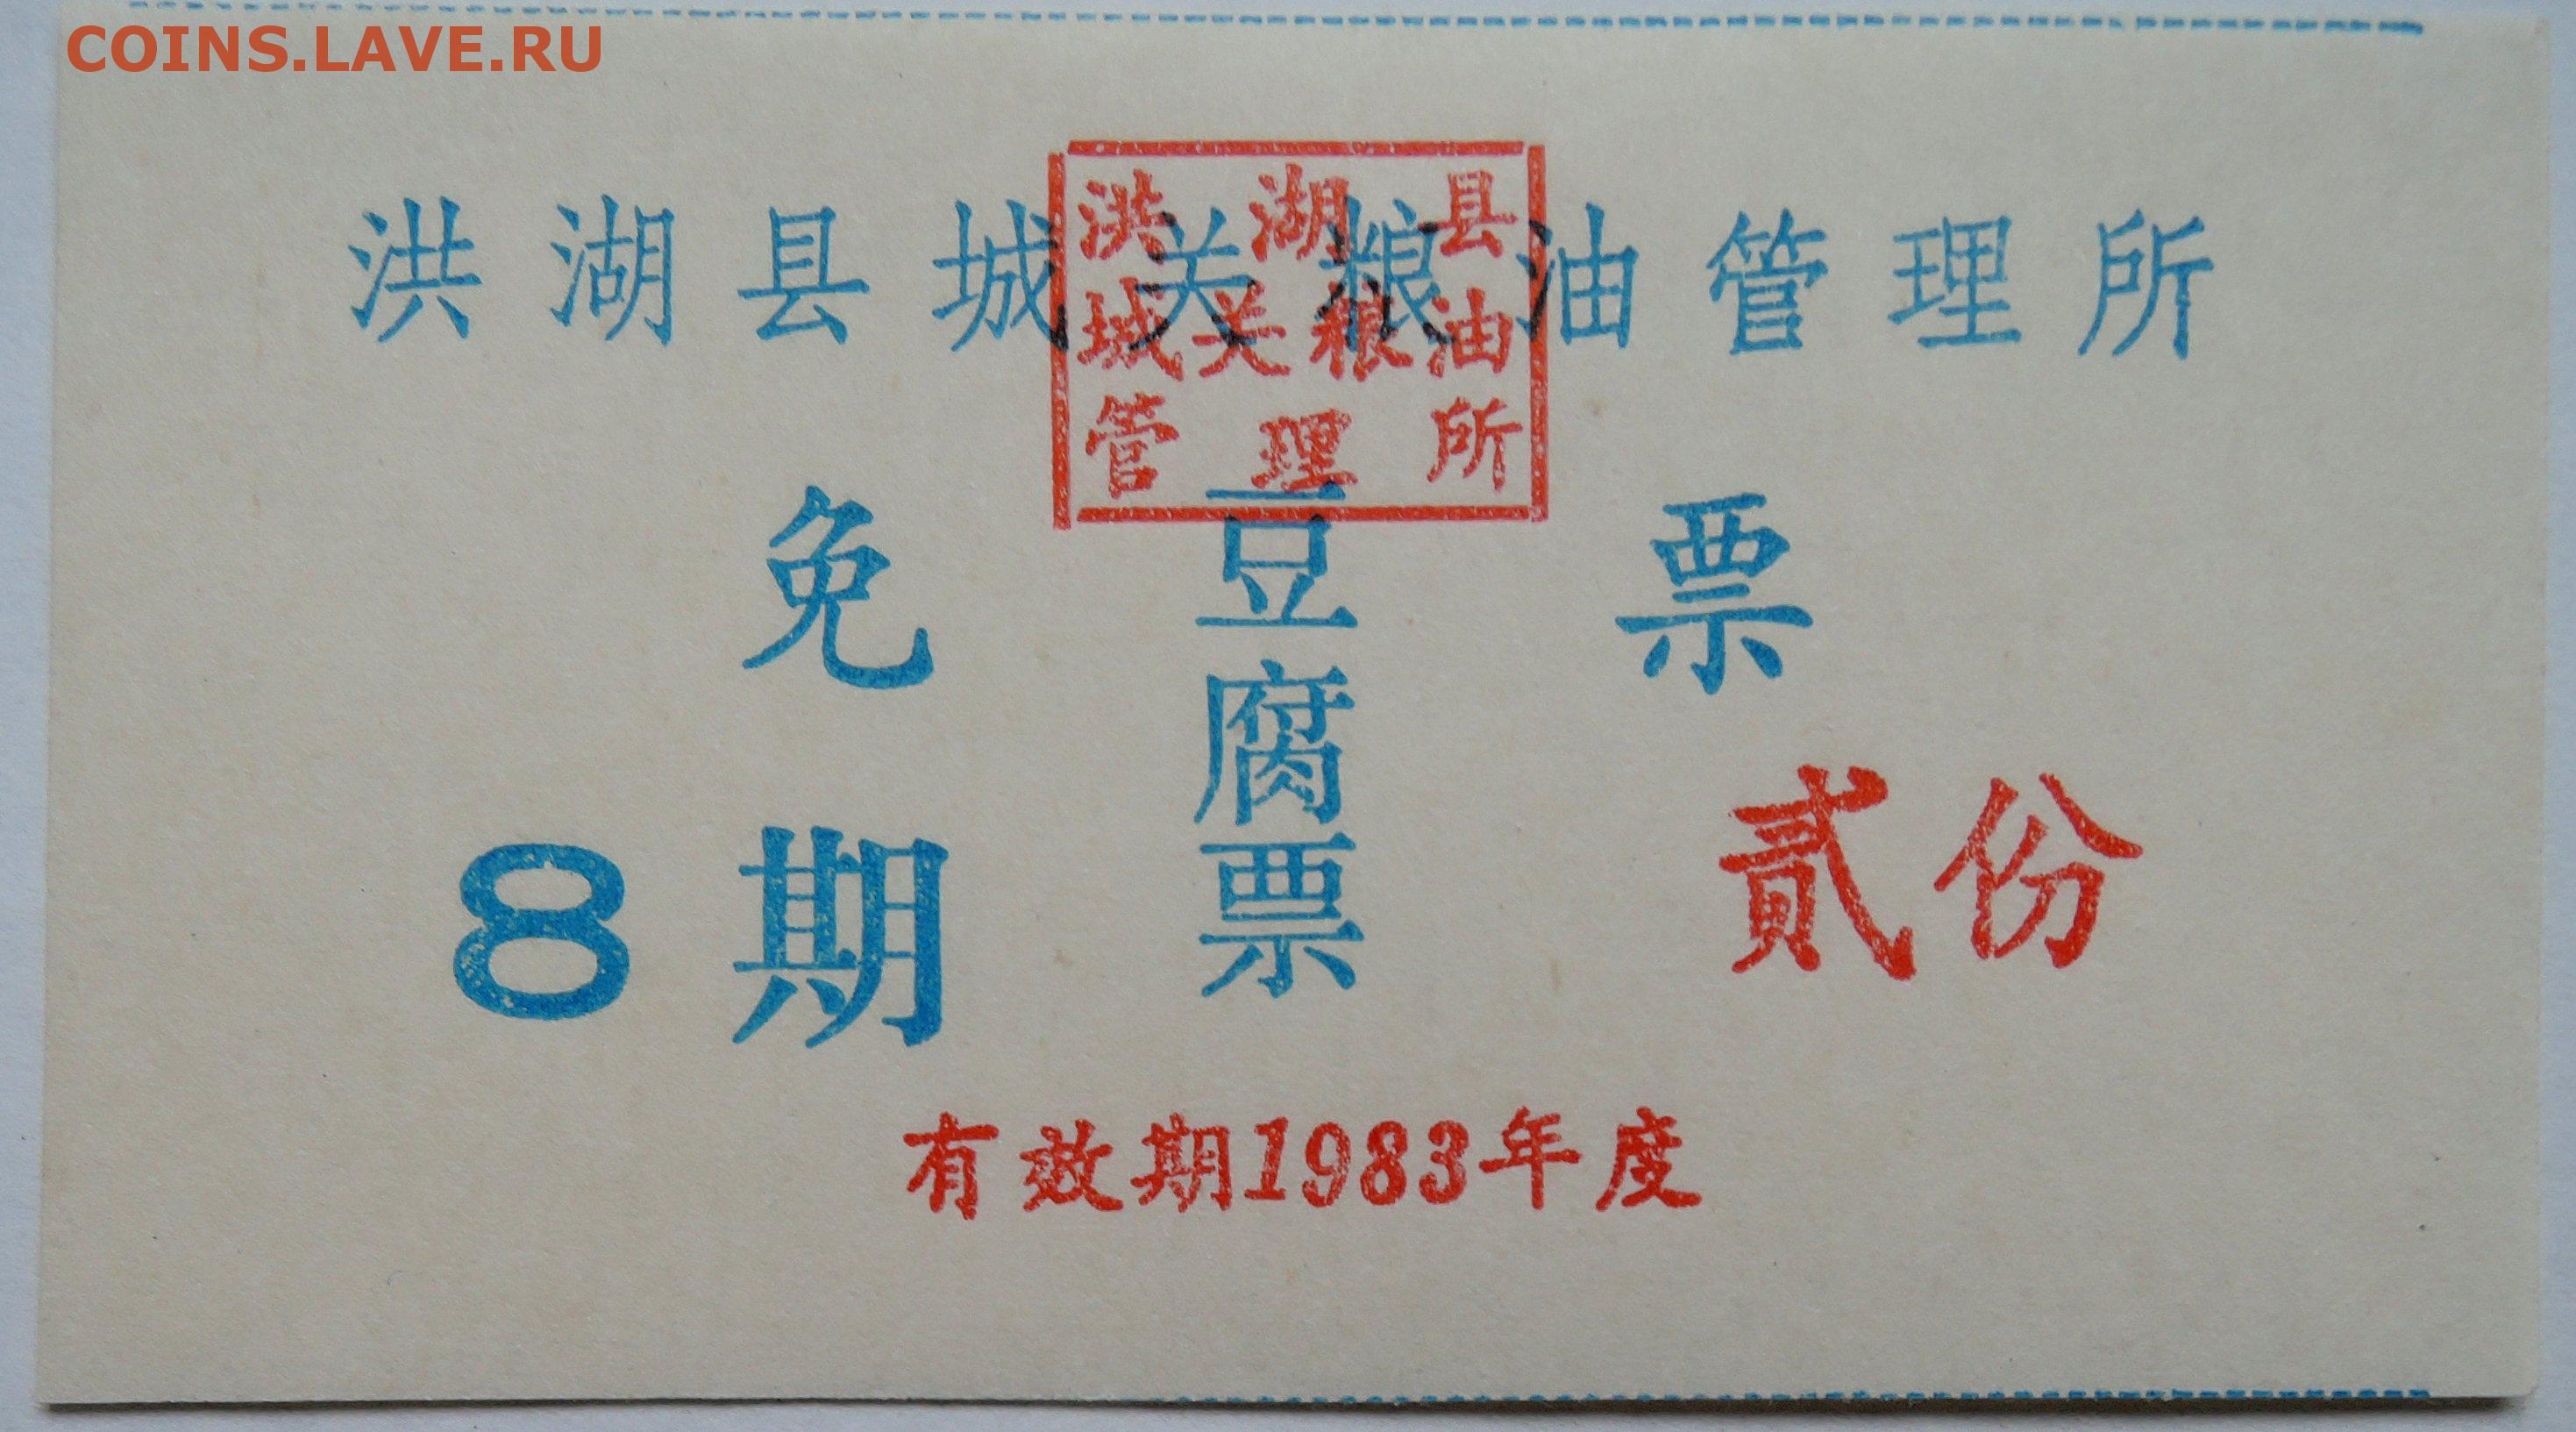 COINS.LAVE.RU
洪湖县城关粮油管理所
洪湖县
城关粮油
管理所
免豆腐票票
8期
贰份
有效期1983年度